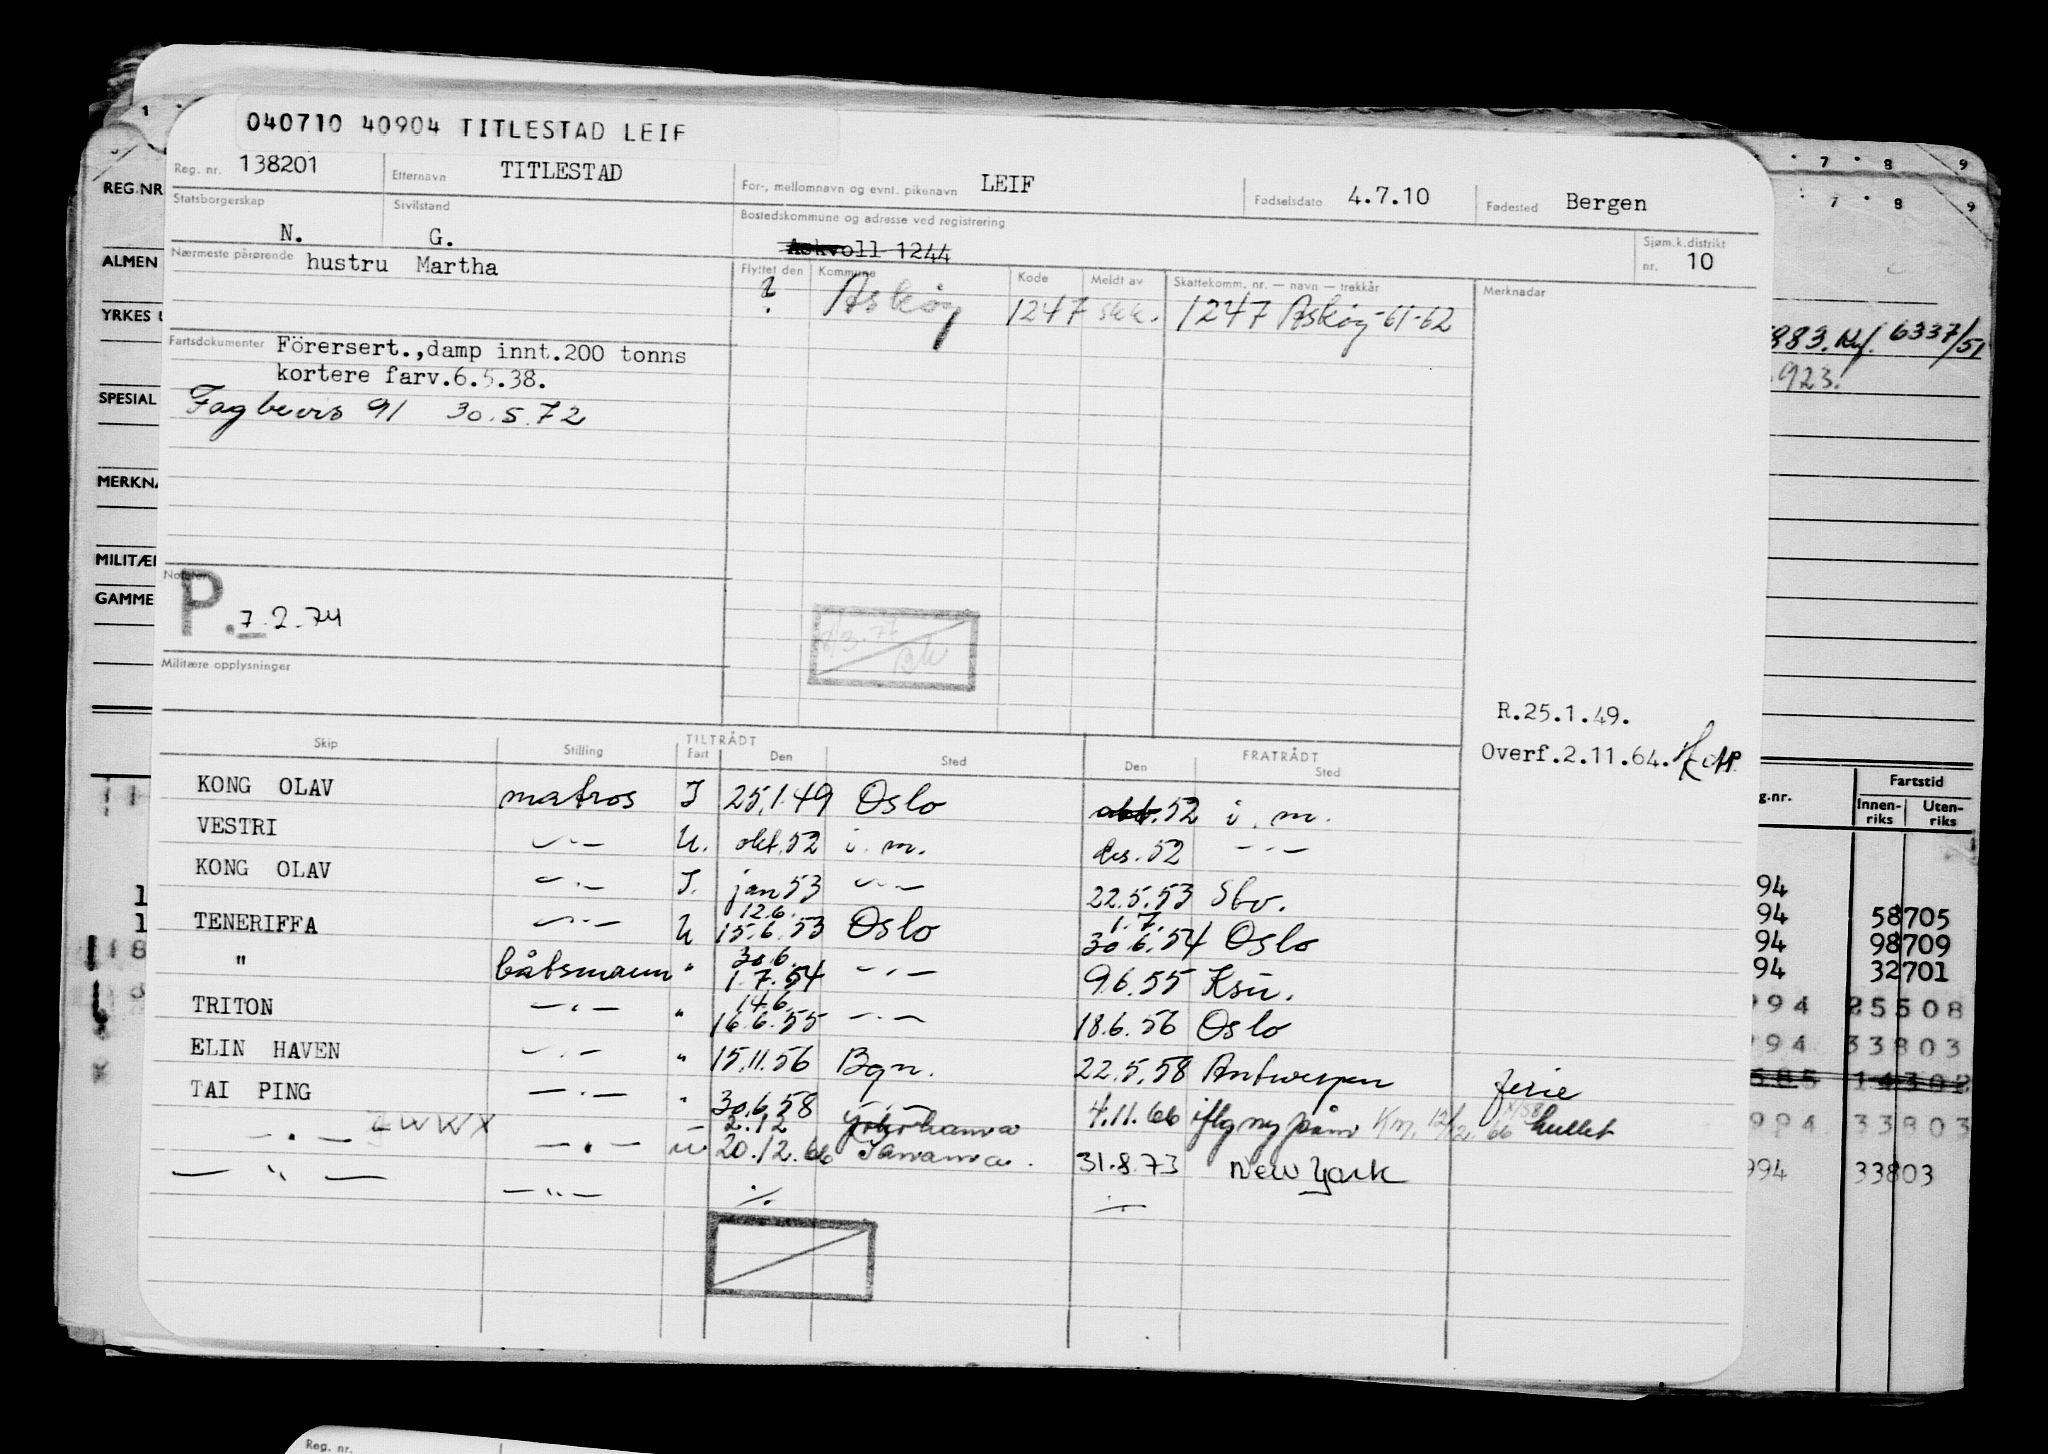 040710 40904 TITLESTAD LEIF
Reg. nr. 138201 Etternavn TITLESTAD For-, mellomnavn og evnt. pikenavn LEIF Fødselsdato 4.7.10 Fødested Bergen
Statsborgerskap N. Sivilstand G. Bostedskommune og adresse ved registrering Askvoll 1244 Sjøm.k.distrikt nr. 10
Nærmeste pårørende hustru Martha
Flyttet den Kommune Kode Meldt av Skattekomm. nr. — navn — trekkår Merknadar
? Askøy 1247 skk. 1247 Askøy-61-62
Fartsdokumenter Förersert.,damp innt.200 tonns
kortere farv.6.5.38.
Fagbevis 91 30.5.72
Notater
P. 7.2.74
Militære opplysninger
R.25.1.49.
Overf.2.11.64.
TILTRÅDT FRATRÅDT
Skip Stilling Fart Den Sted Den Sted
KONG OLAV matros I 25.1.49 Oslo okt.52 i. m.
VESTRI —·— U. okt.52 i. m. des.52 —·—
KONG OLAV —·— I. jan 53 —·— 22.5.53 Sbv.
12.6. 1.7.
TENERIFFA —·— U 15.6.53 Oslo 30.6.54 Oslo
30.6.
" båtsmann " 1.7.54 —·— 9.6.55 Ksu.
14.6.
TRITON —·— " 16.6.55 —·— 18.6.56 Oslo
ELIN HAVEN —·— " 15.11.56 Bgn. 22.5.58 Antwerpen ferie
TAI PING —·— " 30.6.58 —·— 4.11.66 iflg ny påm hullet
2.12 Yokohama
—·— —·— 20.12.66 Panama. 31.8.73 New York
— " — — " — ·/· ·/·
REG.NR
ALMEN
YRKES
SPESIAL
MERKNA
MILITÆR
GAMME
7 8 9
7 8 9
883. 6337/51
923.
Fartstid
g.nr. Innen-riks Uten-riks
94
94 58705
94 98709
94 32701
994 25508
994 33803
585 14302
994 33803
994 33803
Reg. nr.